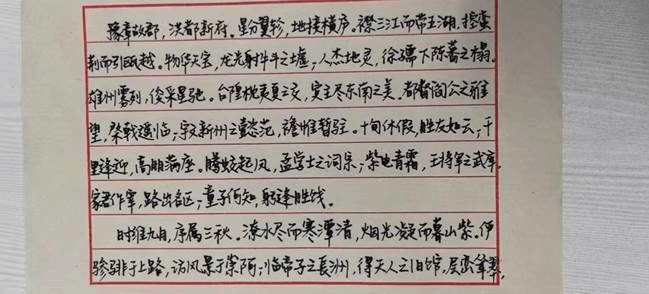 豫章故郡，洪都新府。星分翼轸，地接横庐。襟三江而带五湖，控蛮
荆而引瓯越。物华天宝，龙光射牛斗之墟；人杰地灵，徐孺下陈蕃之榻。
雄州雾列，俊采星驰。台隍枕夷夏之交，宾主尽东南之美。都督阎公之雅
望，棨戟遥临；宇文新州之懿范，襜帷暂驻。十旬休假，胜友如云；千
里逢迎，高朋满座。腾蛟起凤，孟学士之词宗；紫电青霜，王将军之武库。
家君作宰，路出名区；童子何知，躬逢胜饯。
时维九月，序属三秋。潦水尽而寒潭清，烟光凝而暮山紫。俨
骖騑于上路，访风景于崇阿；临帝子之长洲，得天人之旧馆。层峦耸翠，